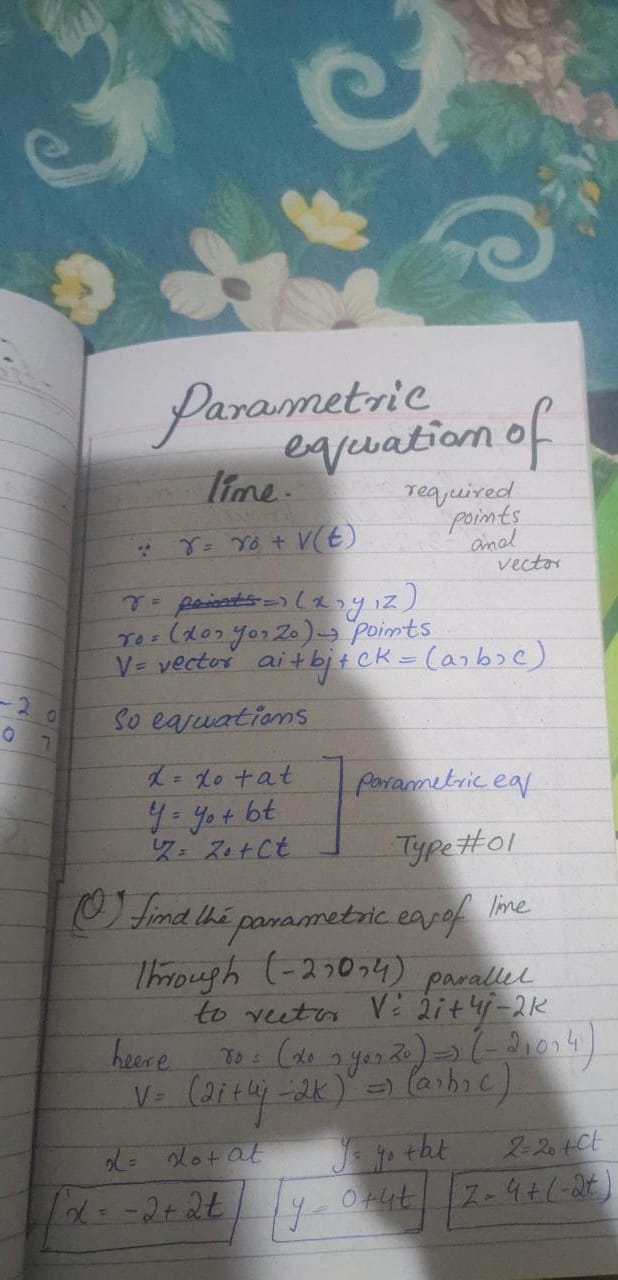 Parametric
equation of
line.
required
points
and
vector
∵ r = r₀ + V(t)
r = points => (x, y, z)
r₀ = (x₀, y₀, z₀) → points
V = vector ai + bj + ck = (a, b, c)
-2 0
0 7
So equations
x = x₀ + at
y = y₀ + bt
z = z₀ + ct
parametric eq
Type #01
Q) find the parametric eq of line
through (-2, 0, 4) parallel
to vector V: 2i + 4j - 2k
heere r₀ = (x₀, y₀, z₀) => (-2, 0, 4)
V = (2i + 4j - 2k) => (a, b, c)
x = x₀ + at y = y₀ + bt z = z₀ + ct
x = -2 + 2t y = 0 + 4t z = 4 + (-2t)